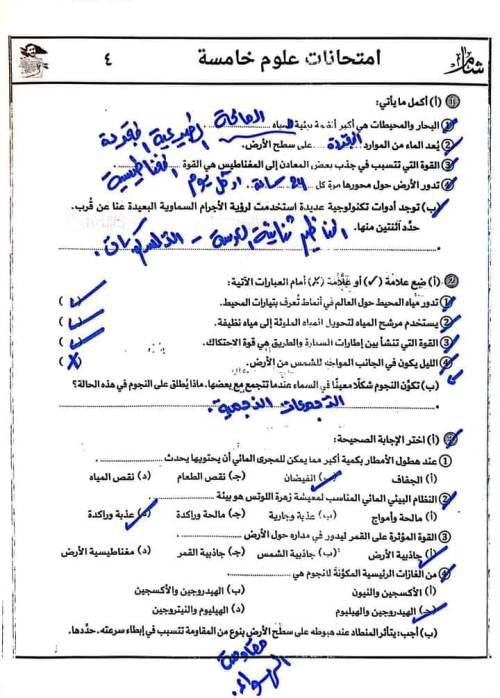 شامل
امتحانات علوم خامسة
٤
① (أ) أكمل ما يأتي:
① البحار والمحيطات هي أكبر أنظمة بيئية لمياه المالحة
② يُعد الماء من الموارد الطبيعية المتجددة على سطح الأرض.
③ القوة التي تتسبب في جذب بعض المعادن إلى المغناطيس هي القوة المغناطيسية
④ تدور الأرض حول محورها مرة كل 24 ساعة او كل يوم
(ب) توجد أدوات تكنولوجية عديدة استخدمت لرؤية الأجرام السماوية البعيدة عنا عن قُرب.
حدِّد اثنتين منها.
المناظير ثنائية العدسة - التلسكوبات.
② (أ) ضع علامة (✓) أو علامة (✗) أمام العبارات الآتية:
① تدور مياه المحيط حول العالم في أنماط تُعرف بتيارات المحيط. (✓)
② يستخدم مرشح المياه لتحويل المياه الملوثة إلى مياه نظيفة. (✓)
③ القوة التي تنشأ بين إطارات السيارة والطريق هي قوة الاحتكاك. (✓)
④ الليل يكون في الجانب المواجه للشمس من الأرض. (✗)
(ب) تكوِّن النجوم شكلًا معينًا في السماء عندما تتجمع مع بعضها. ماذا يُطلق على النجوم في هذه الحالة؟
التجمعات النجمية.
③ (أ) اختر الإجابة الصحيحة:
① عند هطول الأمطار بكمية أكبر مما يمكن للمجرى المائي أن يحتويها يحدث
(أ) الجفاف (ب) الفيضان (جـ) نقص الطعام (د) نقص المياه
② النظام البيئي المائي المناسب لمعيشة زهرة اللوتس هو بيئة
(أ) مالحة وأمواج (ب) عذبة وجارية (جـ) مالحة وراكدة (د) عذبة وراكدة
③ القوة المؤثرة على القمر ليدور في مداره حول الأرض
(أ) جاذبية الأرض (ب) جاذبية الشمس (جـ) جاذبية القمر (د) مغناطيسية الأرض
④ من الغازات الرئيسية المكوِّنة للنجوم هي
(أ) الأكسجين والنيون (ب) الهيدروجين والأكسجين
(جـ) الهيدروجين والهيليوم (د) الهيليوم والنيتروجين
(ب) أجب: يتأثر المنطاد عند هبوطه على سطح الأرض بنوع من المقاومة تتسبب في إبطاء سرعته. حدِّدها.
مقاومة
الهواء.